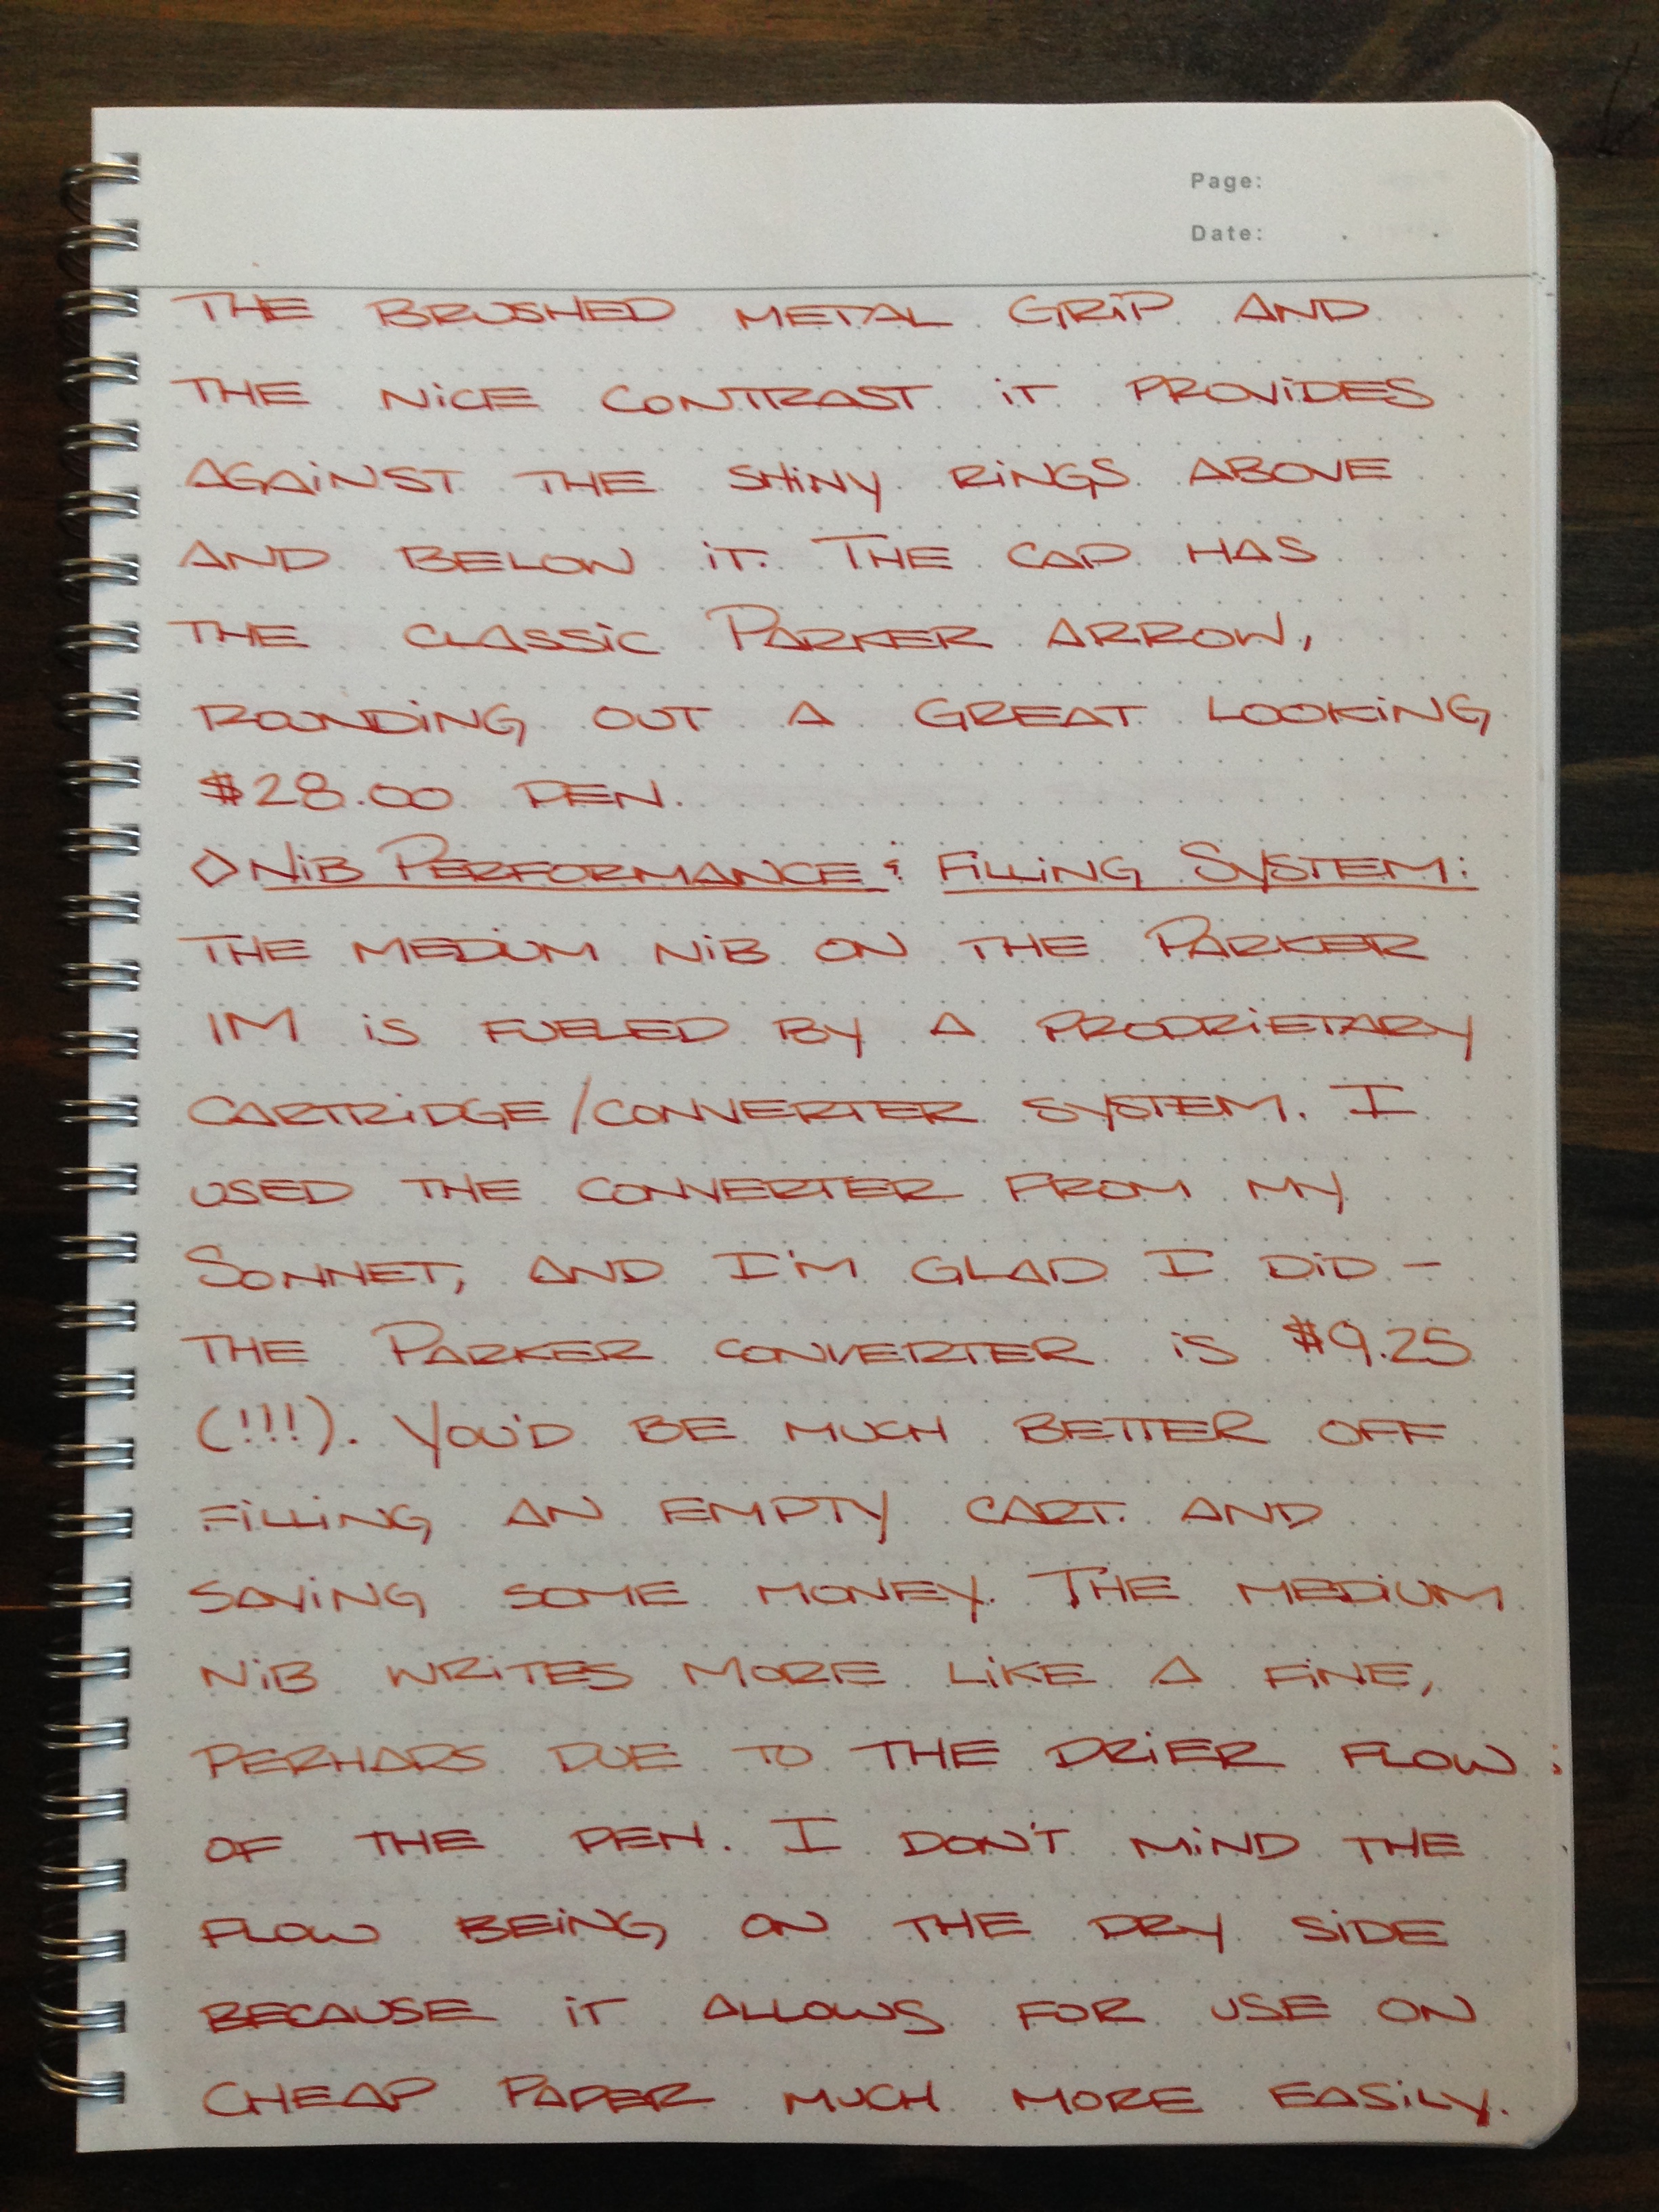 Page:
Date: . .
THE BRUSHED METAL GRiP AND
THE NiCE CONTRAST iT PROViDES
AGAiNST THE SHiNY RiNGS ABOVE
AND BELOW iT. THE CAP HAS
THE CLASSiC PARKER ARROW,
ROUNDiNG OUT A GREAT LOOKiNG
$28.00 PEN.
◇ NiB PERFORMANCE & FiLLiNG SYSTEM:
THE MEDiUM NiB ON THE PARKER
IM iS FUELED BY A PROPRiETARY
CARTRiDGE/CONVERTER SYSTEM. I
USED THE CONVERTER FROM MY
SONNET, AND I'M GLAD I DiD –
THE PARKER CONVERTER iS $9.25
(!!!). YOU'D BE MUCH BETTER OFF
FiLLiNG AN EMPTY CART. AND
SAViNG SOME MONEY. THE MEDiUM
NiB WRiTES MORE LiKE A FiNE,
PERHAPS DUE TO THE DRiER FLOW
OF THE PEN. I DON'T MiND THE
FLOW BEiNG ON THE DRY SiDE
BECAUSE iT ALLOWS FOR USE ON
CHEAP PAPER MUCH MORE EASiLY.